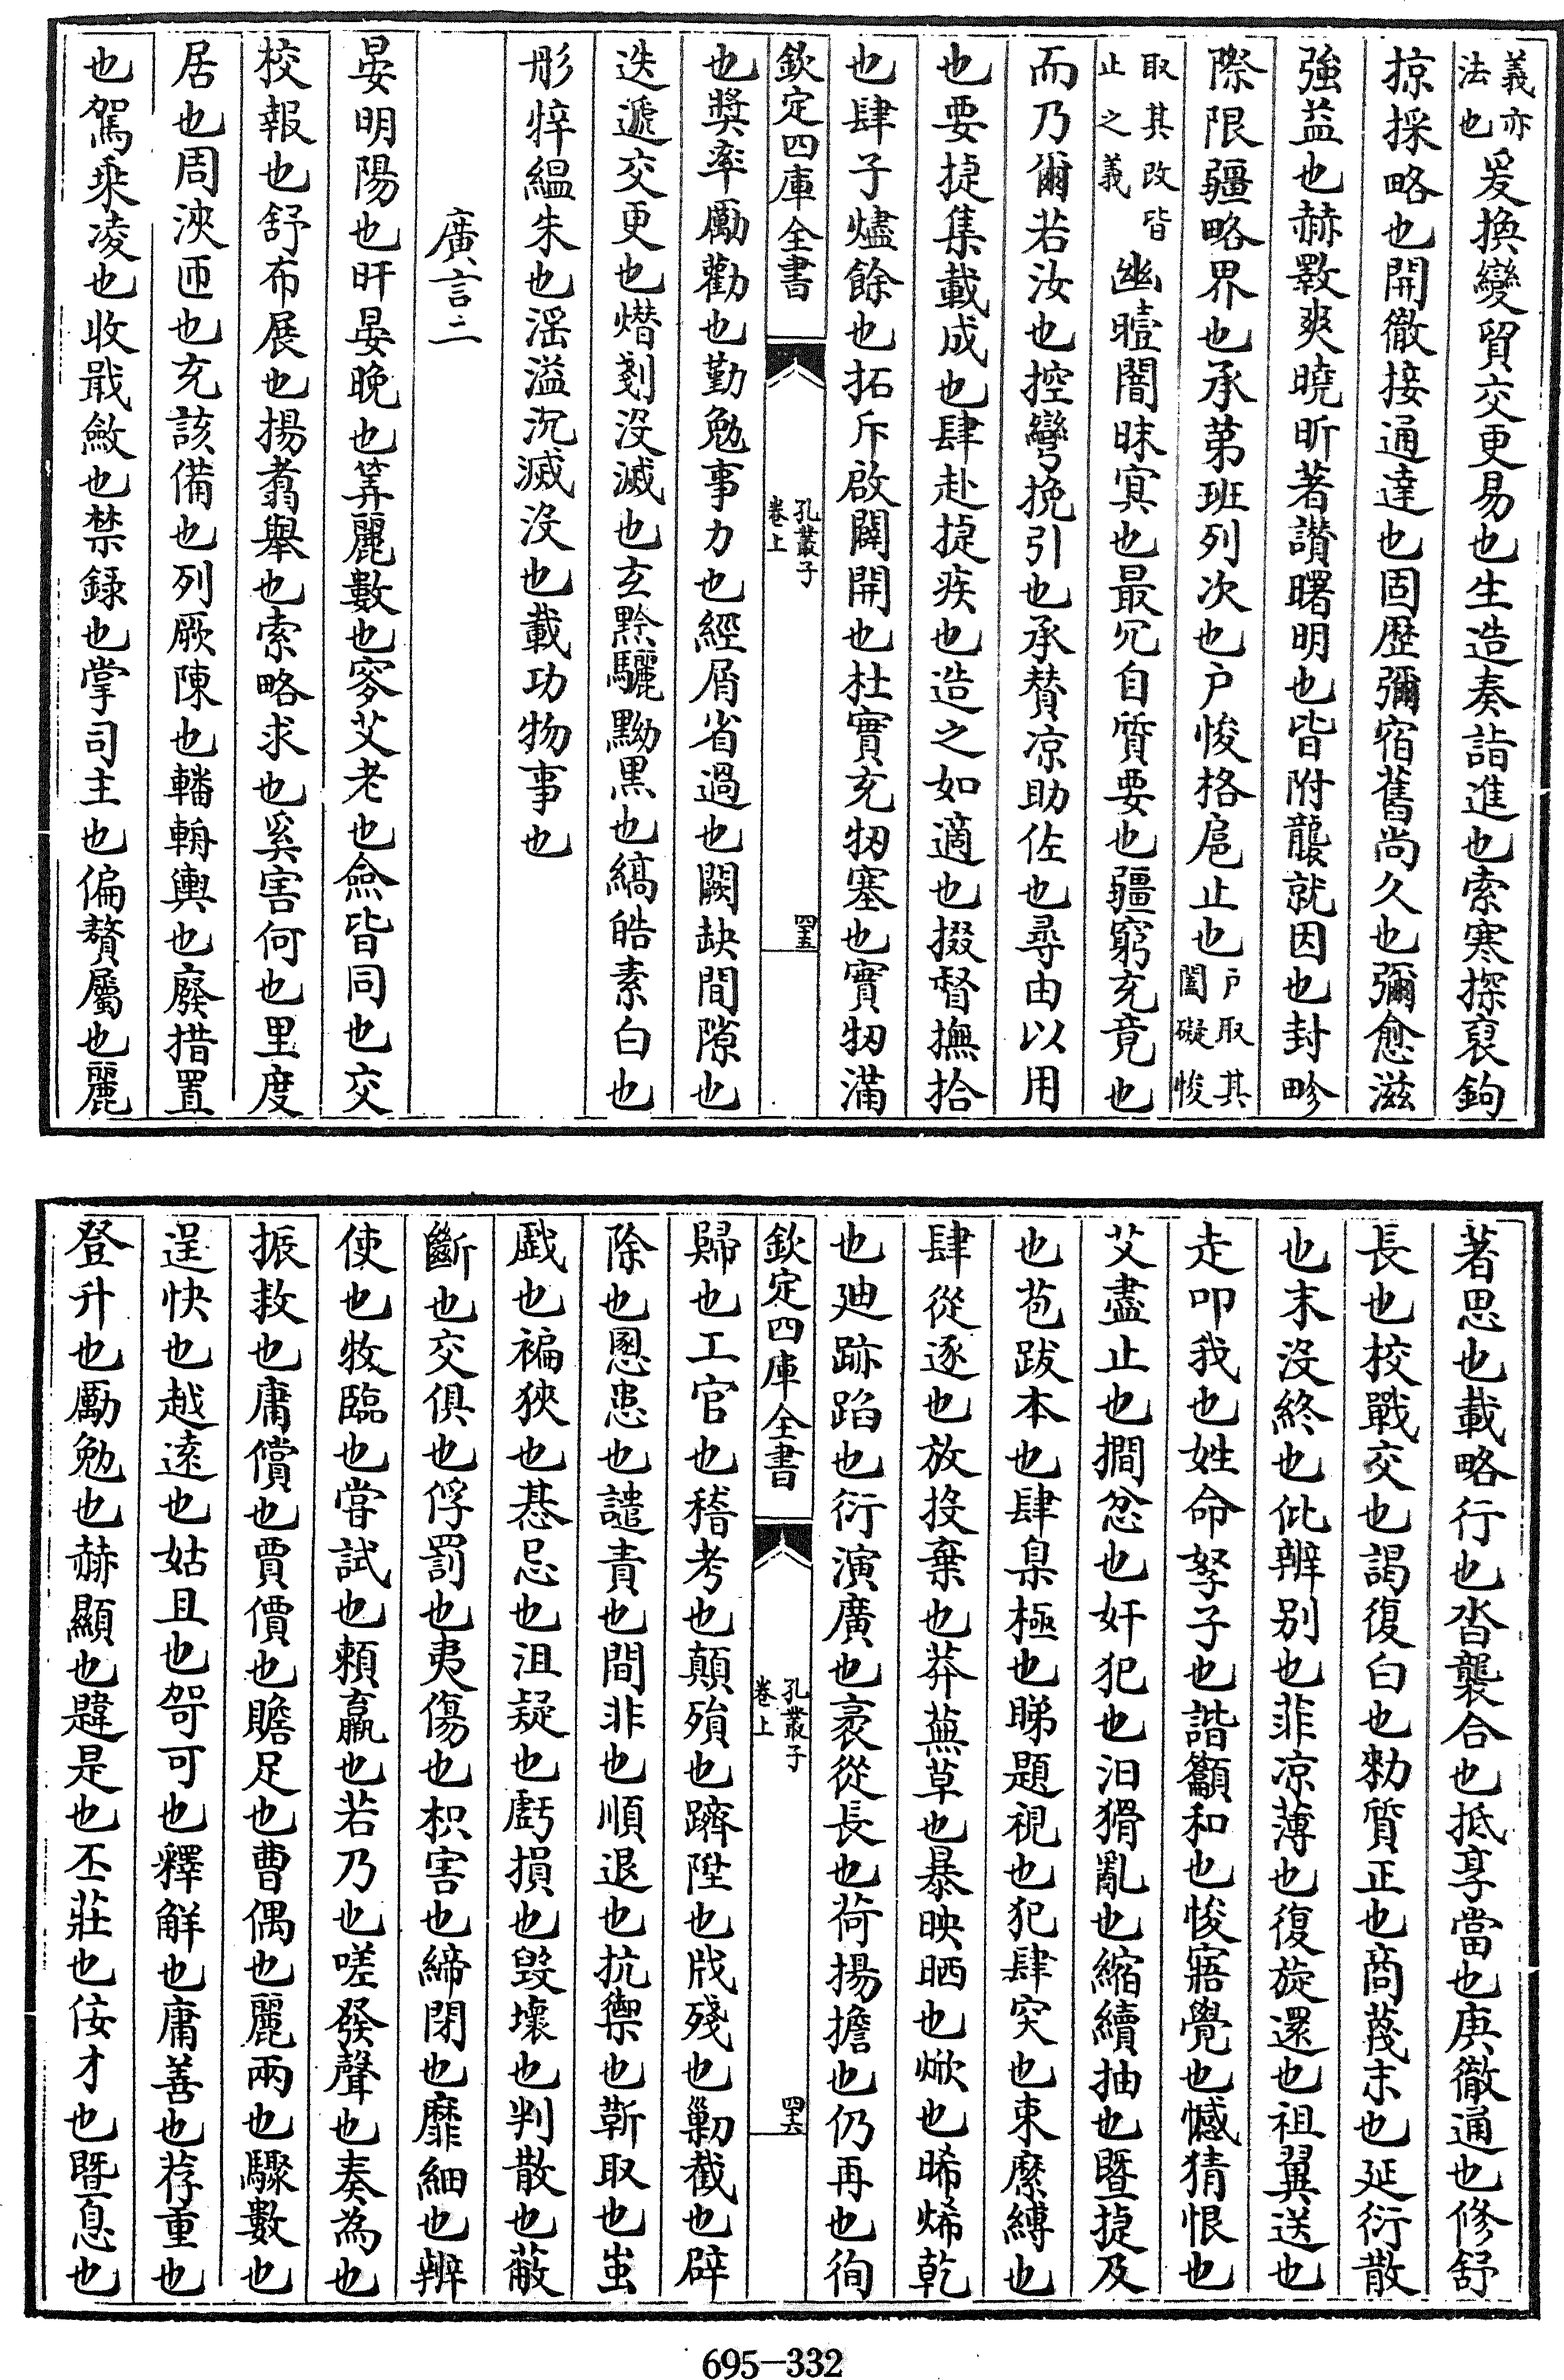 義亦法也爰換變貿交更易也生造奏詣進也索寒探裒鉤
掠採略也開徹接通達也固歷彌宿舊尚久也彌愈滋
強益也赫斁爽曉昕著讃曙明也皆附龔就因也封畛
際限疆略界也承第班列次也戶悛格扈止也戶取其闔礙悛
取其改皆止之義幽曀闇昧㝠也最冗自質要也疆窮充竟也
而乃爾若汝也控彎挽引也承賛凉助佐也尋由以用
也要捷集載成也肆赴捷疾也造之如適也掇督撫拾
也肆子燼餘也拓斥啟闢開也杜實充牣塞也實牣滿
欽定四庫全書
孔叢子
卷上
四五
也獎率厲勸也勤勉事力也經屑省過也闕缺間隙也
迭遞交更也熸剗沒滅也玄黔驪黝黒也縞皓素白也
彤牸緼朱也滛溢沉滅沒也載功物事也
廣言二
晏明陽也旰晏晚也筭麗數也叜艾老也僉皆同也交
校報也舒布展也揚翥舉也索略求也奚害何也里度
居也周浹匝也充該備也列厥陳也轓輈輿也廢措置
也駕乘凌也收戢斂也禁録也掌司主也偏贅屬也麗
著思也載略行也沓襲合也抵享當也庚徹通也修舒
長也校戰交也謁復白也勑質正也商蔑末也延衍散
也末沒終也仳辨别也菲凉薄也復旋還也祖翼送也
走叩我也姓命孥子也諧籲和也悛寤覺也憾猜恨也
艾盡止也撊忿也奸犯也汩猾亂也縮續抽也暨捷及
也苞跋本也肆臬極也睇題視也犯肆突也束縻縛也
肆從逐也放投棄也莽蕪草也暴映晒也焮也晞烯乾
也廸跡蹈也衍演廣也袤從長也荷揚擔也仍再也徇
欽定四庫全書
孔叢子
卷上
四六
歸也工官也稽考也顛殞也躋陞也戕殘也勦截也辟
除也慁患也譴責也間非也順退也抗禦也蘄取也蚩
戲也褊狹也惎忌也沮疑也虧損也毀壞也判散也蔽
斷也交俱也俘罰也夷傷也枳害也締閉也靡細也辨
使也牧臨也嘗試也賴贏也若乃也嗟發聲也奏為也
振救也庸償也賈價也贍足也曹偶也麗兩也驟數也
逞快也越逺也姑且也哿可也釋解也庸善也荐重也
登升也勵勉也赫顯也韙是也丕莊也佞才也曁息也
695-332